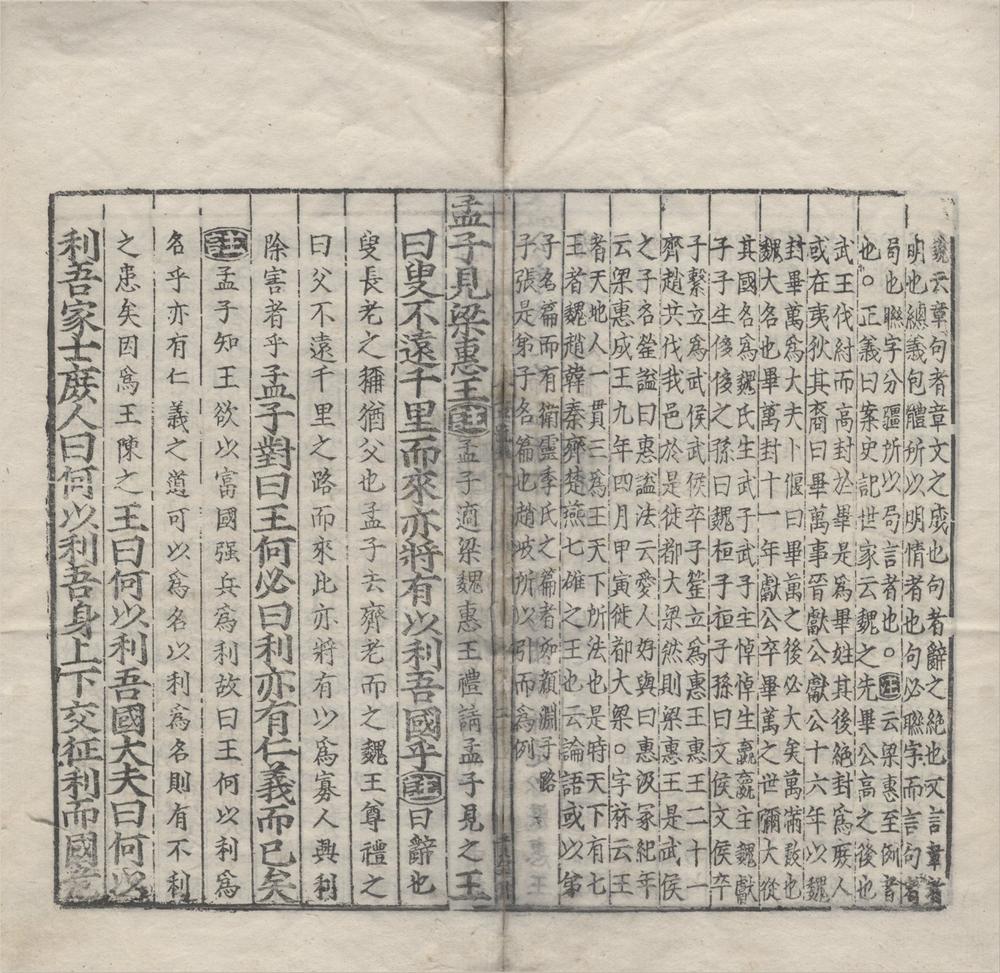 魏云章句者章文之成也句者辭之絶也又言章者
明也總義包體所以明情者也句必聯字而言句者
局也聯字分疆所以局言者也○註云梁惠至例者
也○正義曰案史記世家云魏之先畢公高之後也
武王伐紂而高封於畢是爲畢姓其後絶封爲庻人
或在夷狄其裔曰畢萬事晉獻公獻公十六年以魏
封畢萬爲大夫卜偃曰畢萬之後必大矣萬滿數也
魏大名也畢萬封十一年獻公卒畢萬之世彌大從
其國名爲魏氏生武子武子主悼悼生嬴嬴主魏獻
子子生侈侈之孫曰魏桓子桓子孫曰文侯文侯卒
子繫立爲武侯武侯卒子罃立爲惠王惠王二十一
齊趙共伐我邑於是徙都大梁然則梁惠王是武侯
之子名罃謚曰惠謚法云愛人好與曰惠汲冢紀年
云梁惠成王九年四月甲寅徙都大梁○字林云王
者天地人一貫三爲王天下所法也是時天下有七
王者魏趙韓秦齊楚燕七雄之王也云論語或以第
子名篇而有衛靈季氏之篇者如顔淵子路
子張是第子名篇也趙岐所以引而爲例
孟子見梁惠王註孟子適梁魏惠王禮請孟子見之王
曰叟不遠千里而來亦將有以利吾國乎註曰辭也
叟長老之稱猶父也孟子去齊老而之魏王尊禮之
曰父不遠千里之路而來此亦將有以爲寡人興利
除害者乎孟子對曰王何必曰利亦有仁義而已矣
註孟子知王欲以富國强兵爲利故曰王何以利爲
名乎亦有仁義之道可以爲名以利爲名則有不利
之患矣因爲王陳之王曰何以利吾國大夫曰何以
利吾家士庻人曰何以利吾身上下交征利而國危